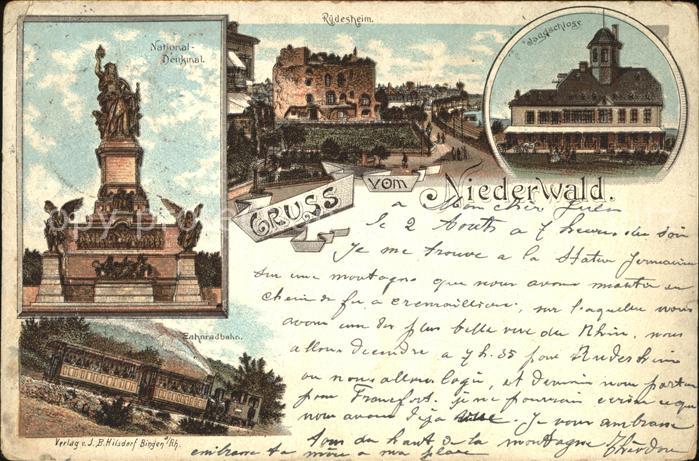 Rüdesheim.
National-
Denkmal.
Jagdschloss
GRUSS VOM Niederwald.
a Mon cher Jules
le 2 Aout a 7 heures du soir
Je me trouve a la Statue Germania
sur une montagne que nous avons montée en
chemin de fer a cremaillière, sur laquelle nous
avons une des plus belle vue du Rhin. nous
allons decendre a 7h.35 pour Rudesheim
Zahnradbahn.
ou nous allons logé, et demain nous partons
pour Francfort. je ne pourrais ecrire ce que
nous avons déja vue. Je vous embrasse
tous du haut de la montagne Théodore
embrasse ta mère a ma place
Verlag v. J. B. Hilsdorf Bingen a/Rh.